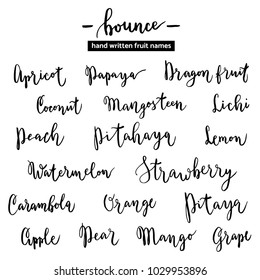 - bounce -
hand written fruit names
Apricot Papaya Dragon fruit
Coconut Mangosteen Lichi
Peach Pitahaya Lemon
Watermelon Strawberry
Carambola Orange Pitaya
Apple Pear Mango Grape
shutterstock.com · 1029953896